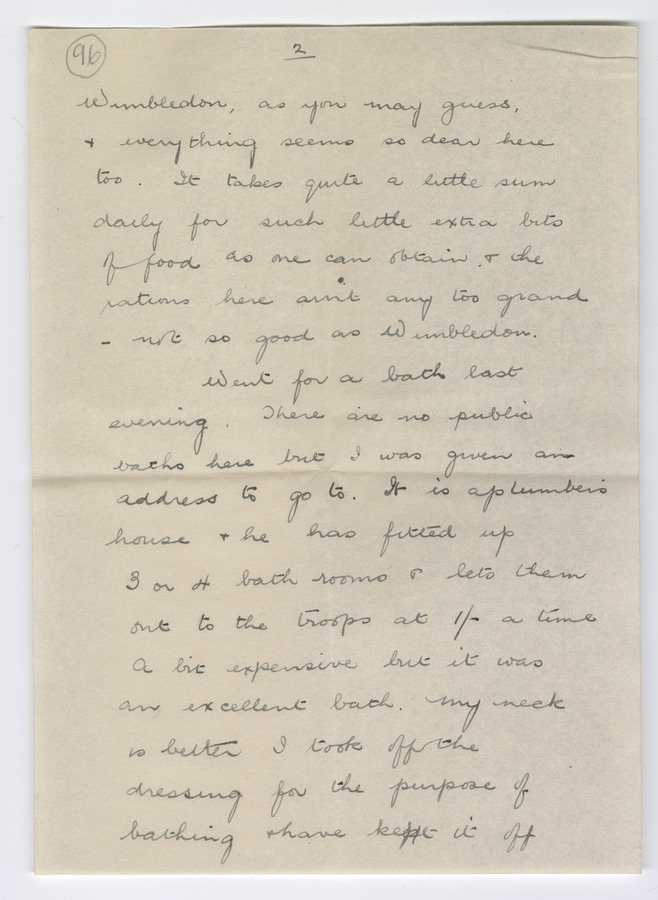 96
2
Wimbledon, as you may guess,
& everything seems so dear here
too. It takes quite a little sum
daily for such little extra bits
of food as one can obtain. & the
rations here ain't any too grand
- not so good as Wimbledon.
Went for a bath last
evening. There are no public
baths here but I was given an
address to go to. It is a plumber's
house & he has fitted up
3 or 4 bath rooms & lets them
out to the troops at 1/- a time
A bit expensive but it was
an excellent bath. My neck
is better I took off the
dressing for the purpose of
bathing & have kept it off